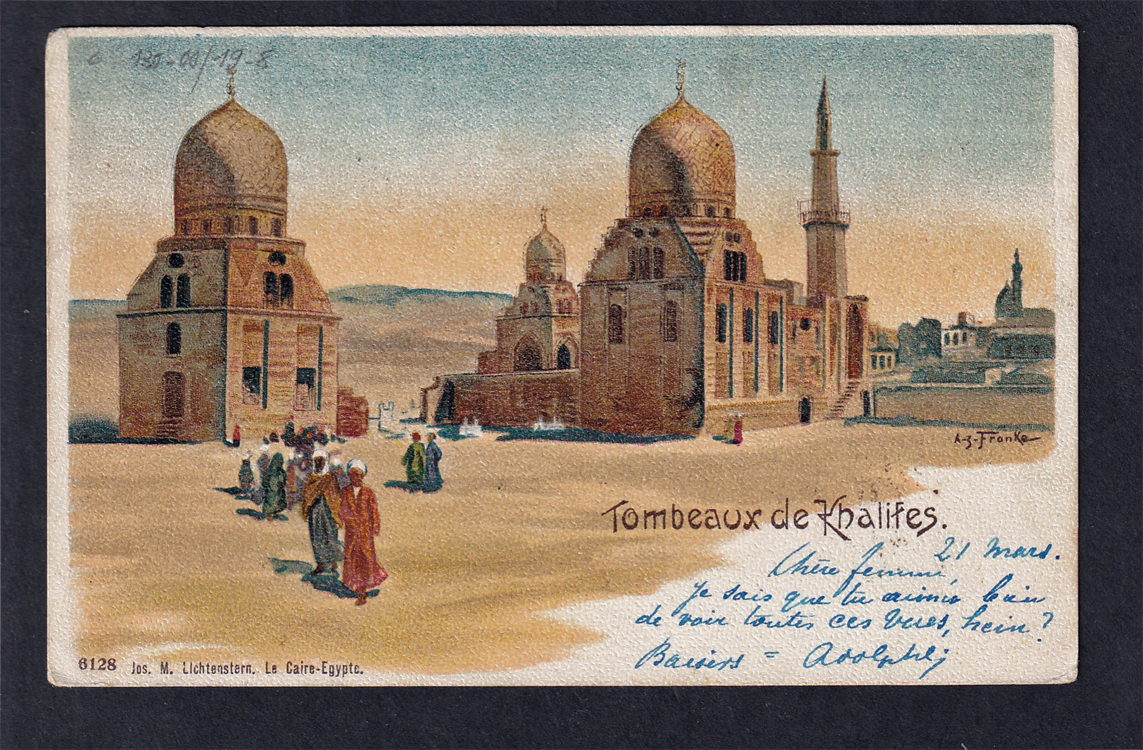 130-00/-19-8
A-3-Franke
Tombeaux de Khalifes.
21 Mars.
Chère femme
Je sais que tu aimes bien
de voir toutes ces vues, hein?
Baisers = Adolphe
6128 Jos. M. Lichtenstern. Le Caire-Egypte.